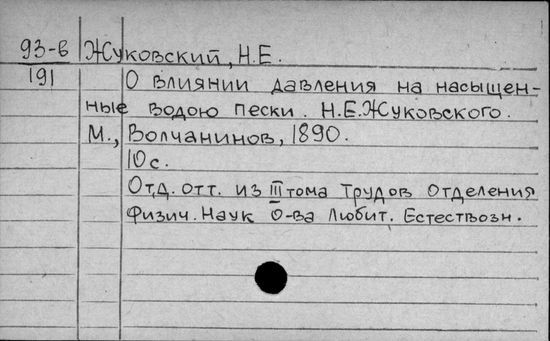 93-в Жуковский, Н.Е.
191 О влиянии давления на насыщен-
ные водою пески. Н.Е.Жуковского.
М., Волчанинов, 1890.
10с.
Отд. отт. из III тома Трудов Отделения
Физич. Наук О-ва Любит. Естествозн.